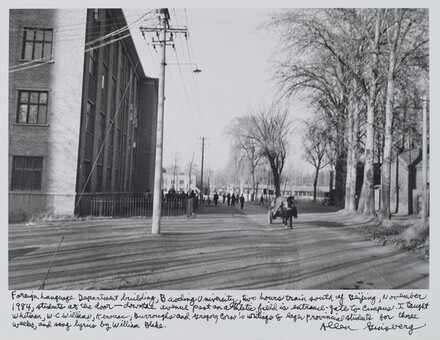 Foreign Language Department building, Baoding University, two hours train south of Beijing, November
1984, students at the door — downhill avenue past an athletic field is entrance-gate to Campus. I taught
Whitman, W.C. Williams, Kerouac, Burroughs and Gregory Corso's writings to large provincial students for three
weeks, and song lyrics by William Blake.
Allen Ginsberg